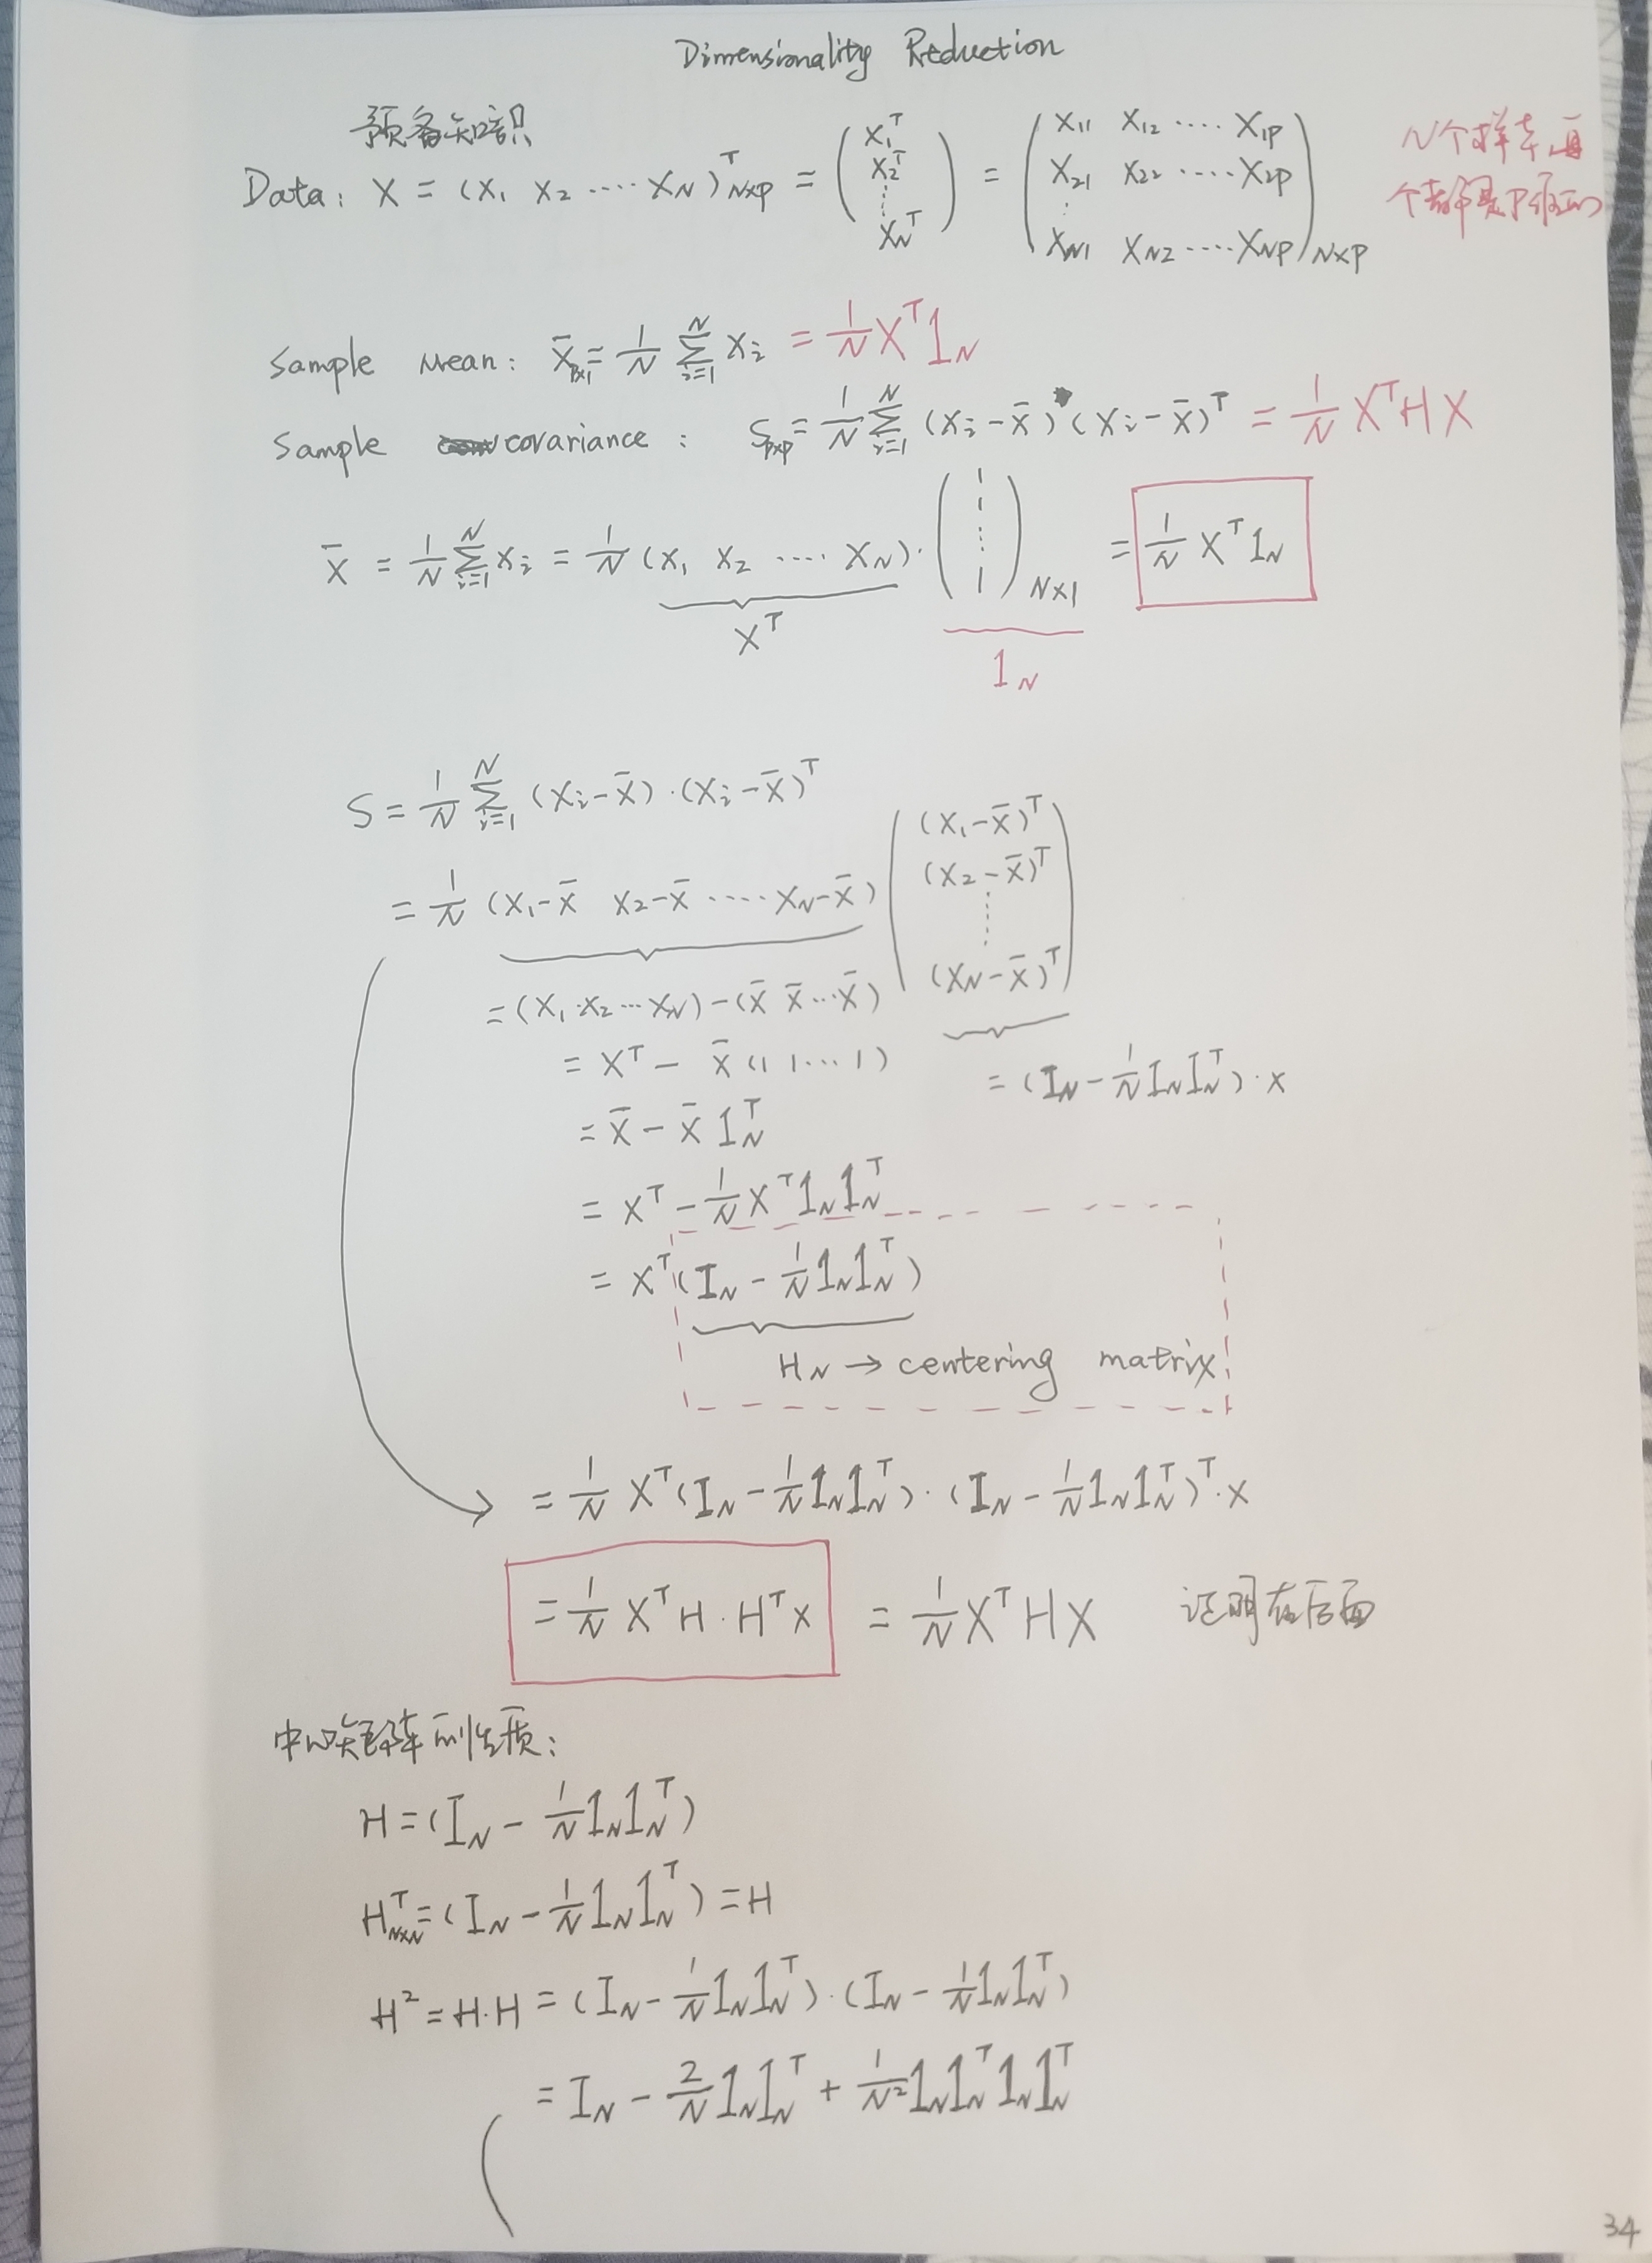 Dimensionality Reduction
预备知识
Data: X = (x₁ x₂ ···· x_N)ᵀ_{N×p} = (x₁ᵀ x₂ᵀ ⋮ x_Nᵀ) = (x₁₁ x₁₂ ···· x₁p x₂₁ x₂₂ ····· x₂p ⋮ x_N1 x_N2 ····· x_Np)_{N×p}
N个样本,每
个都是P维的
Sample Mean: x̄_{p×1} = 1/N Σ_{i=1}^N x_i = 1/N Xᵀ1_N
Sample covariance: S_{p×p} = 1/N Σ_{i=1}^N (x_i - x̄)(x_i - x̄)ᵀ = 1/N XᵀHX
x̄ = 1/N Σ_{i=1}^N x_i = 1/N (x₁ x₂ ···· x_N) · (1 1 ⋮ 1)_{N×1} = 1/N Xᵀ1_N
Xᵀ
1_N
S = 1/N Σ_{i=1}^N (x_i - x̄)·(x_i - x̄)ᵀ
= 1/N (x₁-x̄ x₂-x̄ ····· x_N-x̄) ((x₁-x̄)ᵀ (x₂-x̄)ᵀ ⋮ (x_N-x̄)ᵀ)
= (x₁ x₂ ··· x_N) - (x̄ x̄ ··· x̄)
= Xᵀ - x̄ (1 1 ··· 1)
= (I_N - 1/N I_N I_Nᵀ)·x
= x̄ - x̄ 1_Nᵀ
= Xᵀ - 1/N Xᵀ1_N1_Nᵀ
= Xᵀ(I_N - 1/N 1_N1_Nᵀ)
H_N → centering matrix
= 1/N Xᵀ(I_N - 1/N 1_N1_Nᵀ)·(I_N - 1/N 1_N1_Nᵀ)ᵀ·x
= 1/N XᵀH·Hᵀx = 1/N XᵀHX 证明在后面
中心矩阵的性质:
H = (I_N - 1/N 1_N1_Nᵀ)
Hᵀ_{N×N} = (I_N - 1/N 1_N1_Nᵀ) = H
H² = H·H = (I_N - 1/N 1_N1_Nᵀ)·(I_N - 1/N 1_N1_Nᵀ)
= I_N - 2/N 1_N1_Nᵀ + 1/N² 1_N1_Nᵀ1_N1_Nᵀ
34